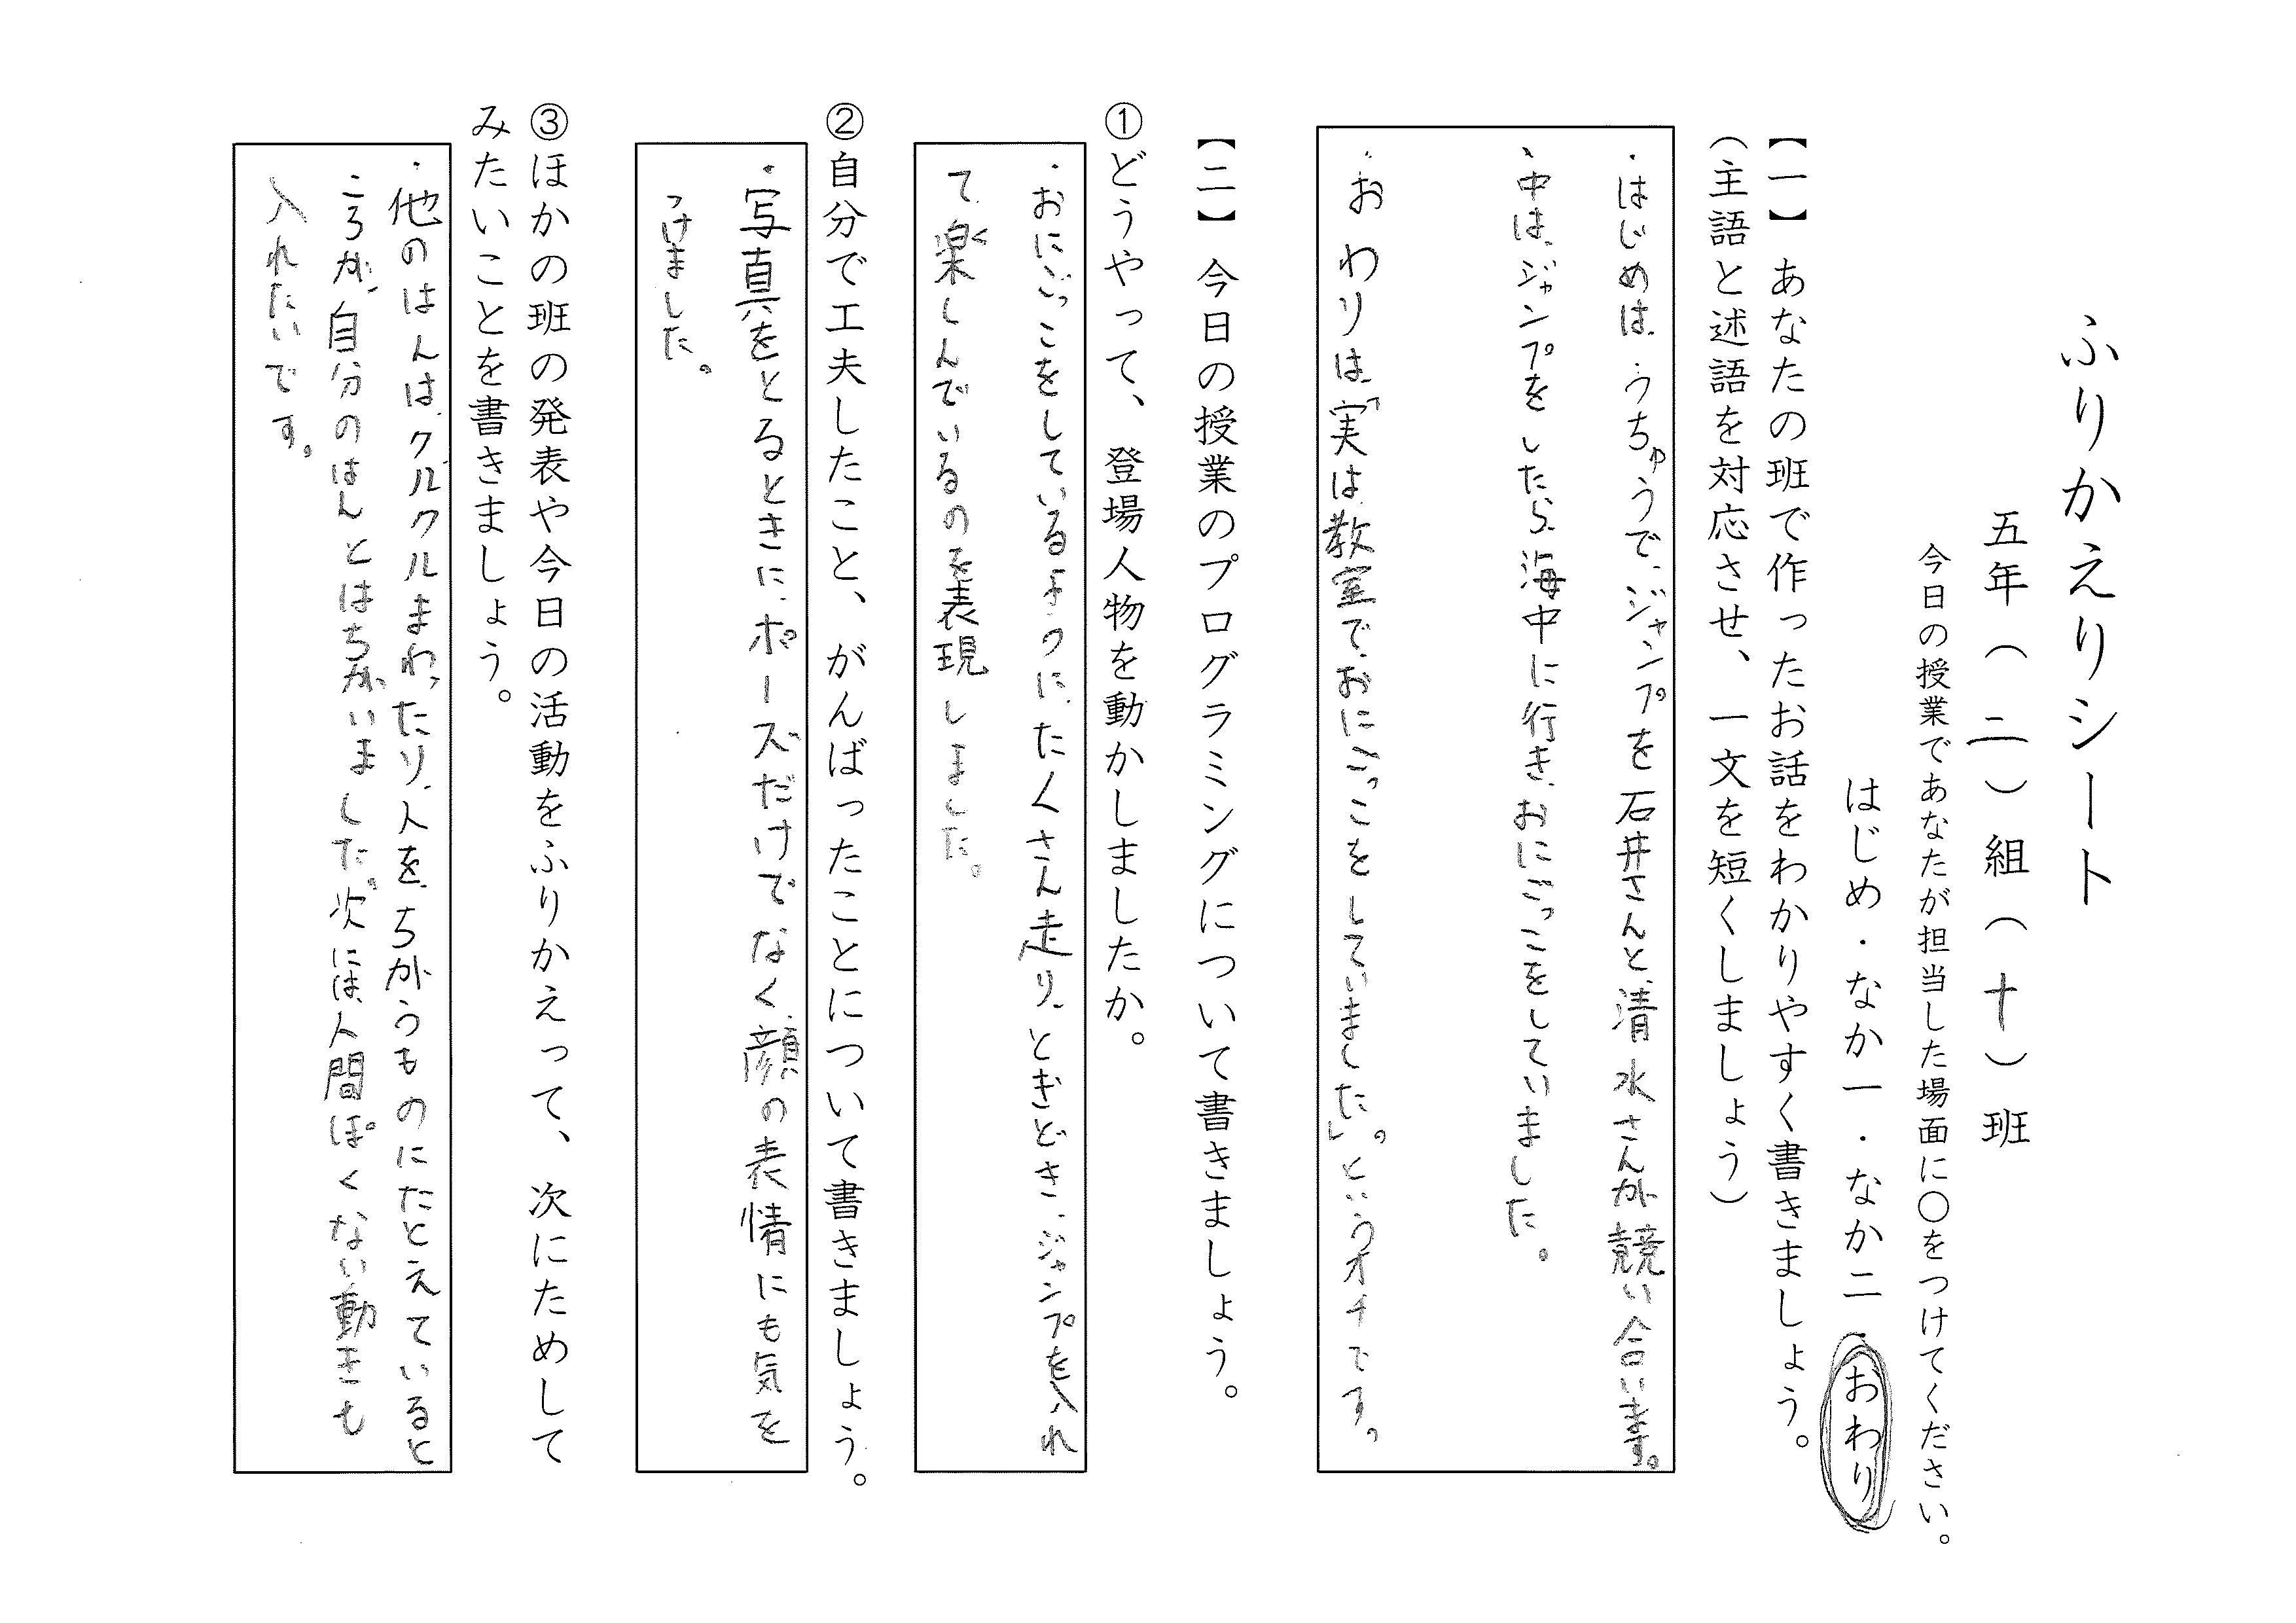 ふりかえりシート
五年（二）組（十）班
今日の授業であなたが担当した場面に〇をつけてください。
はじめ・なか一・なか二・おわり
【一】あなたの班で作ったお話をわかりやすく書きましょう。
（主語と述語を対応させ、一文を短くしましょう）
・はじめは、うちゅうで、ジャンプを石井さんと、清水さんが競い合います。
・中は、ジャンプをしたら、海中に行き、おにごっこをしていました。
・おわりは、「実は、教室で、おにごっこをしていました。」というオチです。
【二】今日の授業のプログラミングについて書きましょう。
①どうやって、登場人物を動かしましたか。
・おにごっこをしているように、たくさん走り、ときどき、ジャンプを入れ
て、楽しんでいるのを表現しました。
②自分で工夫したこと、がんばったことについて書きましょう。
・写真をとるときに、ポーズだけでなく、顔の表情にも気を
つけました。
③ほかの班の発表や今日の活動をふりかえって、次にためして
みたいことを書きましょう。
・他のはんは、クルクルまわったり、人を、ちがうものにたとえていると
ころが、自分のはんとはちがいました。次には、人間ぽくない動きも
入れたいです。